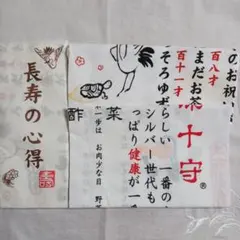 のお祝い
百八才
まだお茶
百十一才
そろそろゆず
らしい 一番の
シルバー世代も
っぱり健康が一
十守®
菜
酢
一歩は お肉少な目 野菜
長寿の心得
寿